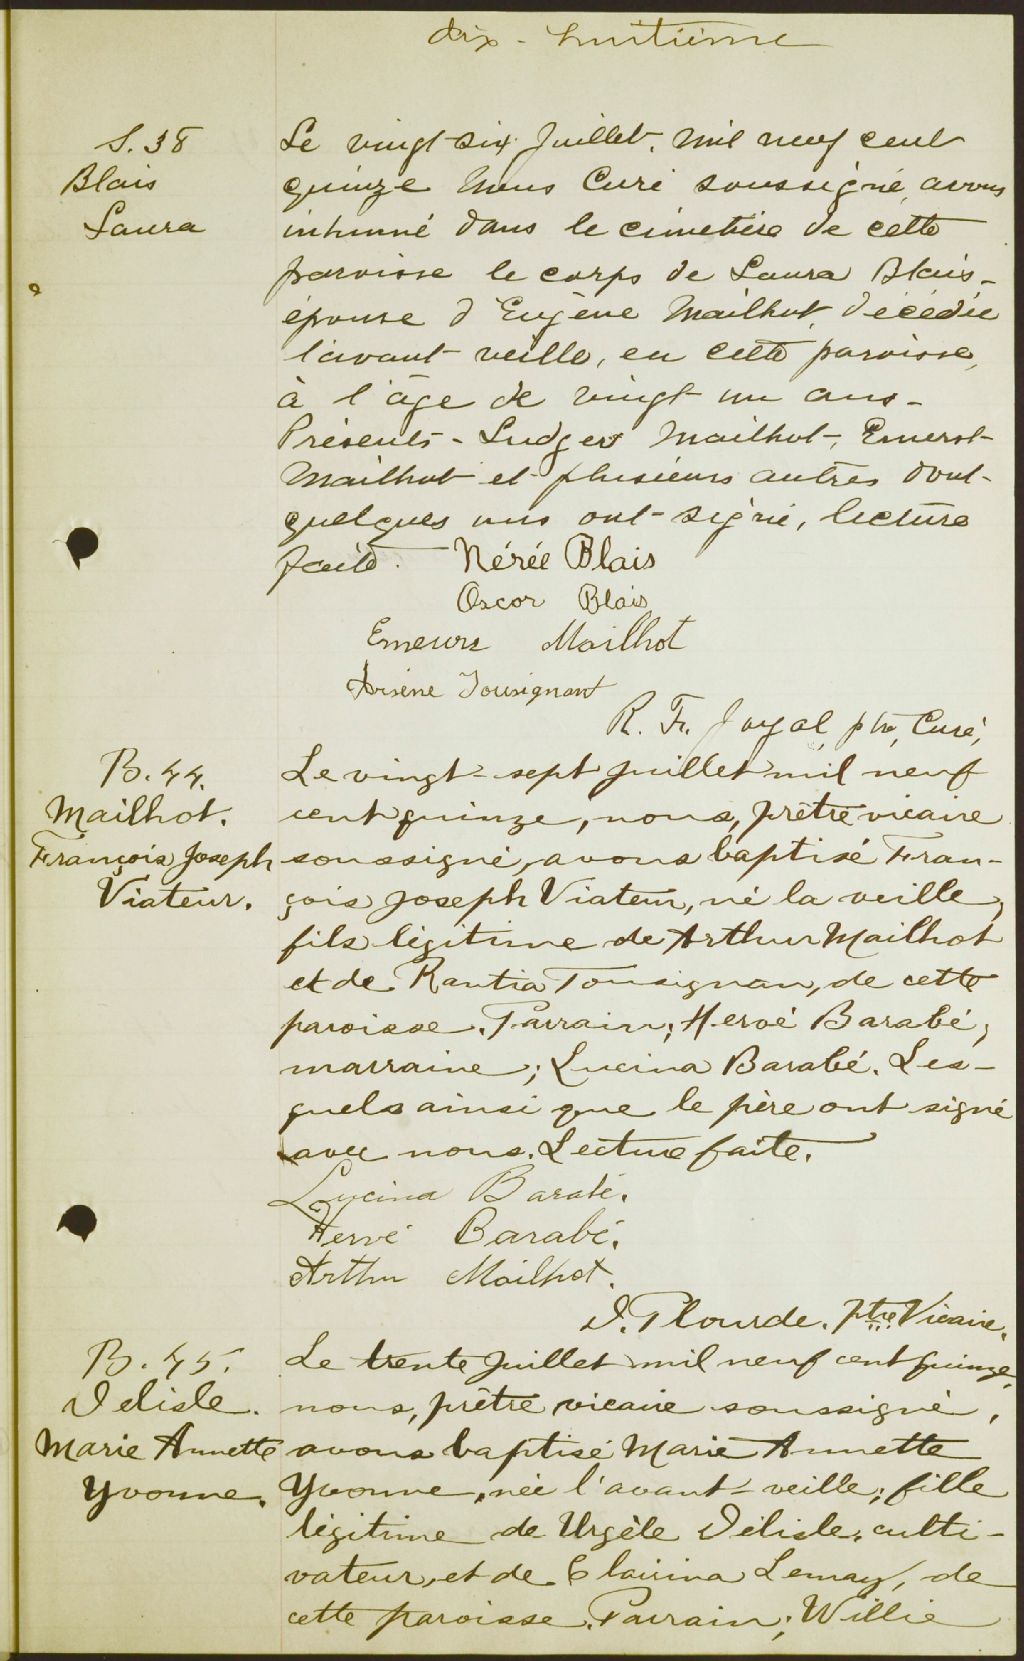 dix-huitième
S. 38
Blais
Laura
Le vingt six Juillet, mil neuf cent
quinze Nous Curé soussigné, avons
inhumé dans le cimetière de cette
paroisse le corps de Laura Blais-
épouse d'Eugène Mailhot, décédée
l'avant veille, en cette paroisse,
à l'âge de vingt un ans-
Présents- Ludger Mailhot, Emerst
Mailhot et plusieurs autres dont
quelques uns ont signé, lecture
faite. Nérée Blais
Oscor Blais
Emeurs Mailhot
Arsène Tousignant
R. Fr. Joyal, ptre, Curé,
B. 44.
Mailhot.
François Joseph
Viateur.
Le vingt-sept juillet mil neuf
cent quinze, nous, prêtre vicaire
soussigné, avons baptisé Fran-
çois Joseph Viateur, né la veille,
fils légitime de Arthur Mailhot
et de Rantia Tousignan, de cette
paroisse. Parrain; Hervé Barabé,
marraine; Lucina Barabé. Les-
quels ainsi que le père ont signé
avec nous. Lecture faite.
Lucina Barabé.
Hervé Barabé.
Arthur Mailhot.
D. Plourde. Ptre Vicaire.
B. 45.
Delisle.
Marie Annette
Yvonne.
Le trente juillet mil neuf cent quinze,
nous, prêtre vicaire soussigné,
avons baptisé Marie Annette
Yvonne, née l'avant-veille; fille
légitime de Urgèle Délisle, culti-
vateur, et de Clairina Lemay, de
cette paroisse. Parrain; Willie